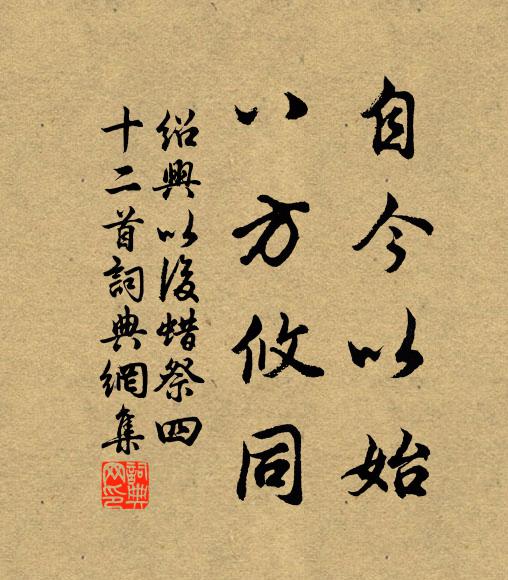 自今以始
八方攸同
紹興以後蜡祭四
十二首詞典網集
詞典網印